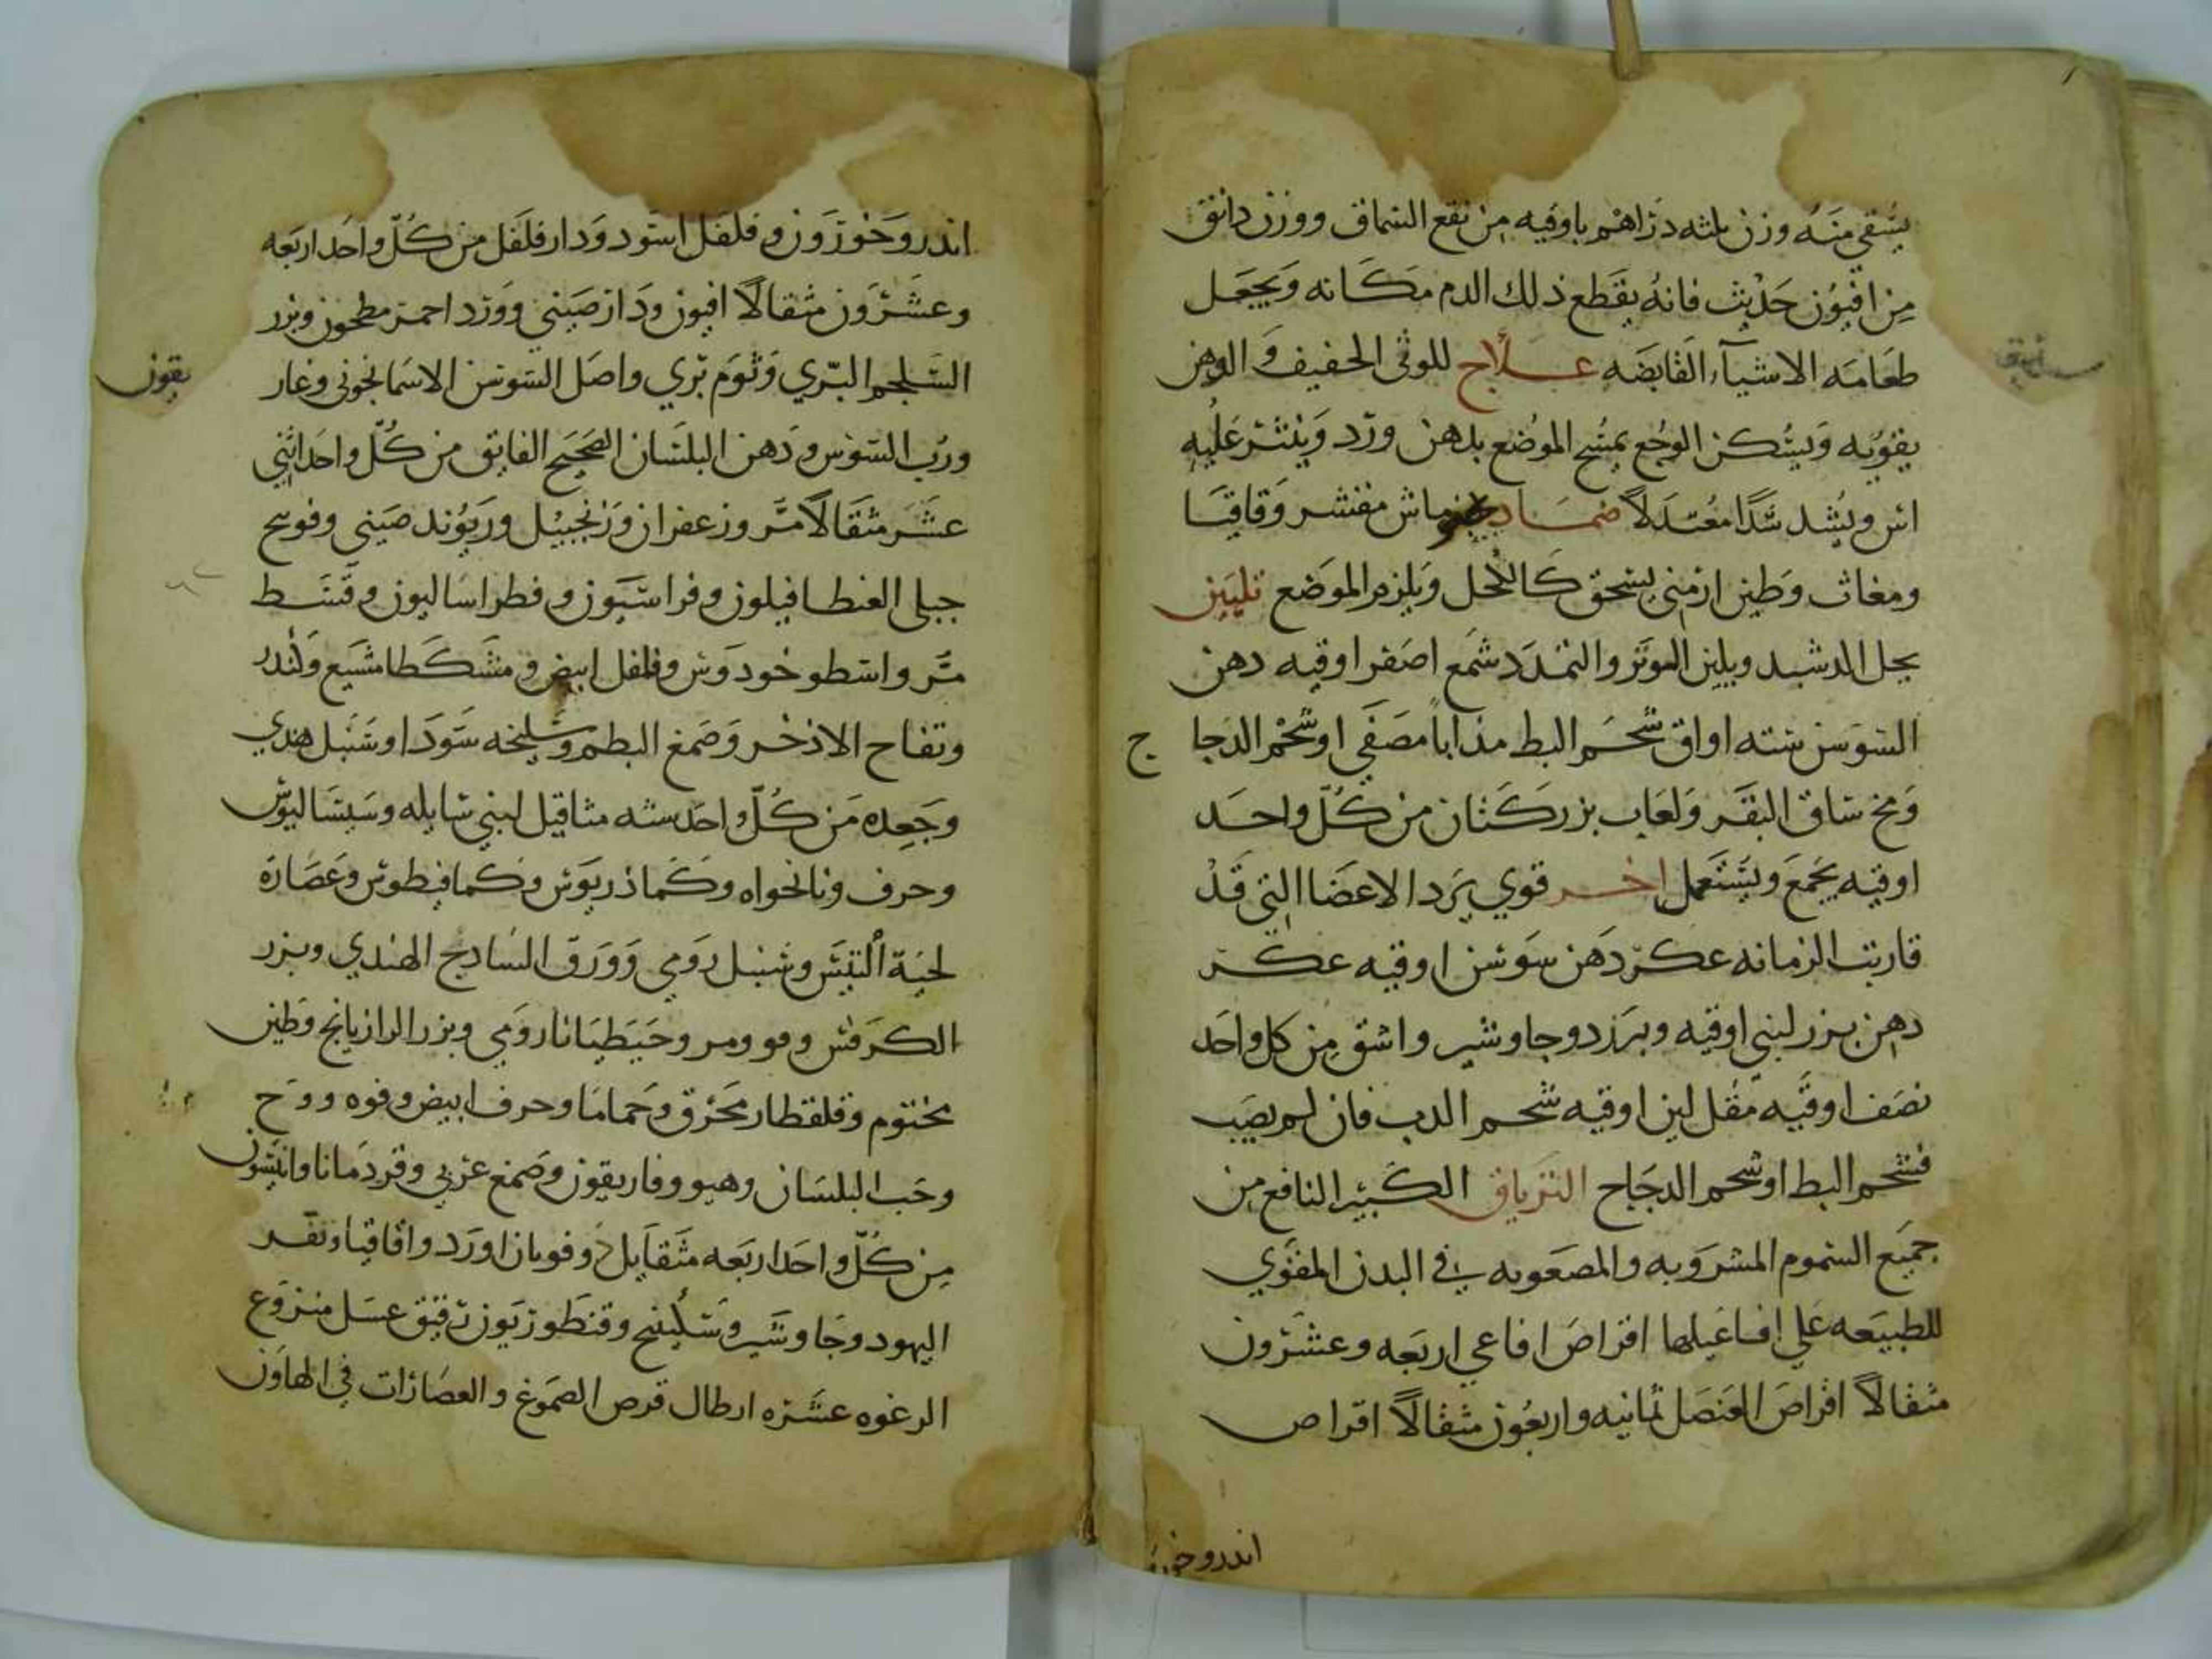 يسقى منه وزن ثلثه دراهم باوقيه من نقع السماق ووزن دانق
من افيون حديث فانه يقطع ذلك الدم مكانه ويجعل
طعامه الاشيآء القابضه علاج للوثى الخفيف والوهن
يقويه ويسكن الوجع يمسح الموضع بدهن ورد وينثر عليه
اس ويشد شدا معتدلا ضماد ماش مقشر وقاقيا
ومغاث وطين ارمني يسحق كالكحل ويلزم الموضع تليين
يحل الدشبد ويلين الموتر والتمدد شمع اصفر اوقيه دهن
السوسن سته اواق شحم البط مذابا مصفى او شحم الدجا
ج
ومخ ساق البقر ولعاب بزر كتان من كل واحد
اوقيه يجمع ويستعمل اخر قوي يرد الاعضا التي قد
قاربت الزمانه عكر دهن سوسن اوقيه عكر
دهن بزر لبني اوقيه وبرزد وجاوشير واشق من كل واحد
نصف اوقيه مقل لين اوقيه شحم الدب فان لم يصب
فشحم البط او شحم الدجاج الترياق الكبير النافع من
جميع السموم المشروبه والمصعوبه في البدن المقوي
للطبيعه على افاعيلها اقراص افاعي اربعه وعشرون
مثقالا اقراص العنصل ثمانيه واربعون مثقالا اقراص
اندروخورون
اندروخورون وفلفل اسود ودار فلفل من كل واحد اربعه
وعشرون مثقالا افيون ودار صيني وورد احمر مطحون وبزر
السلجم البري وثوم بري واصل السوسن الاسمانجوني وغار
يقون
ورب السوس ودهن البلسان الصحيح الفايق من كل واحد اثني
عشر مثقالا مر وزعفران وزنجبيل وريوند صيني وفوتنج
جبلي الغنطافيلون وفراسيون وفطراساليون وقسط
مر واسطوخودوس وفلفل ابيض ومشكطامشيع وكندر
وتفاح الاذخر وصمغ البطم وسليخه سودا وسنبل هندي
وجعده من كل واحد سته مثاقيل لبني سايله وسيساليوس
وحرف ونانخواه وكماذريوس وكمافيطوس وعصارة
لحية التيس وسنبل رومي وورق السادج الهندي وبزر
الكرفس ومو ومر وجنطيانا رومي وبزر الرازيانج وطين
مختوم وقلقطار محرق وحماما وحرف ابيض وفوه ووج
وحب البلسان وهيو وفاريقون وصمغ عربي وقردمانا وانيسون
من كل واحد اربعه مثقايل دوقو وبازاورد واقاقيا ونفر
اليهود وجاوشير وسكبينج وقنطوريون دقيق عسل منزوع
الرغوه عشره ارطال قرص الصموغ والعصارات في الهاون